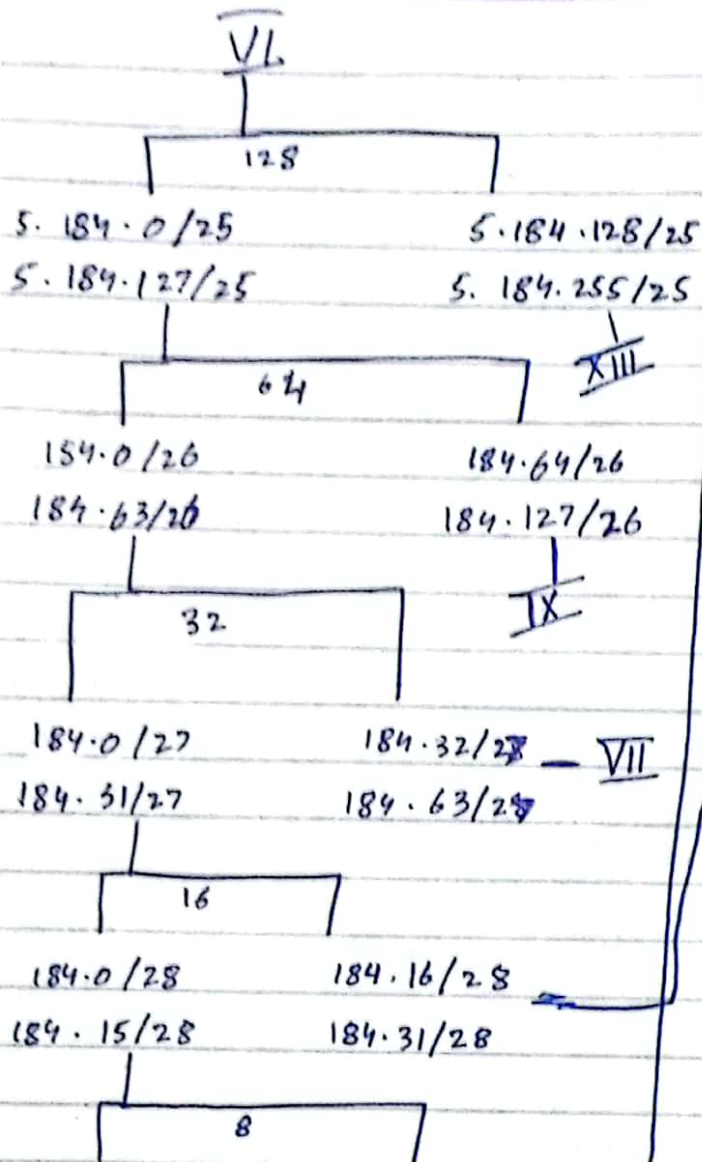 VI
128
5. 184.0/25 5.184.128/25
5. 184.127/25 5. 184.255/25
XIII
64
154.0/26 184.64/26
184.63/26 184.127/26
IX
32
184.0/27 184.32/27 — VII
184.31/27 184.63/27
16
184.0/28 184.16/28
184.15/28 184.31/28
8